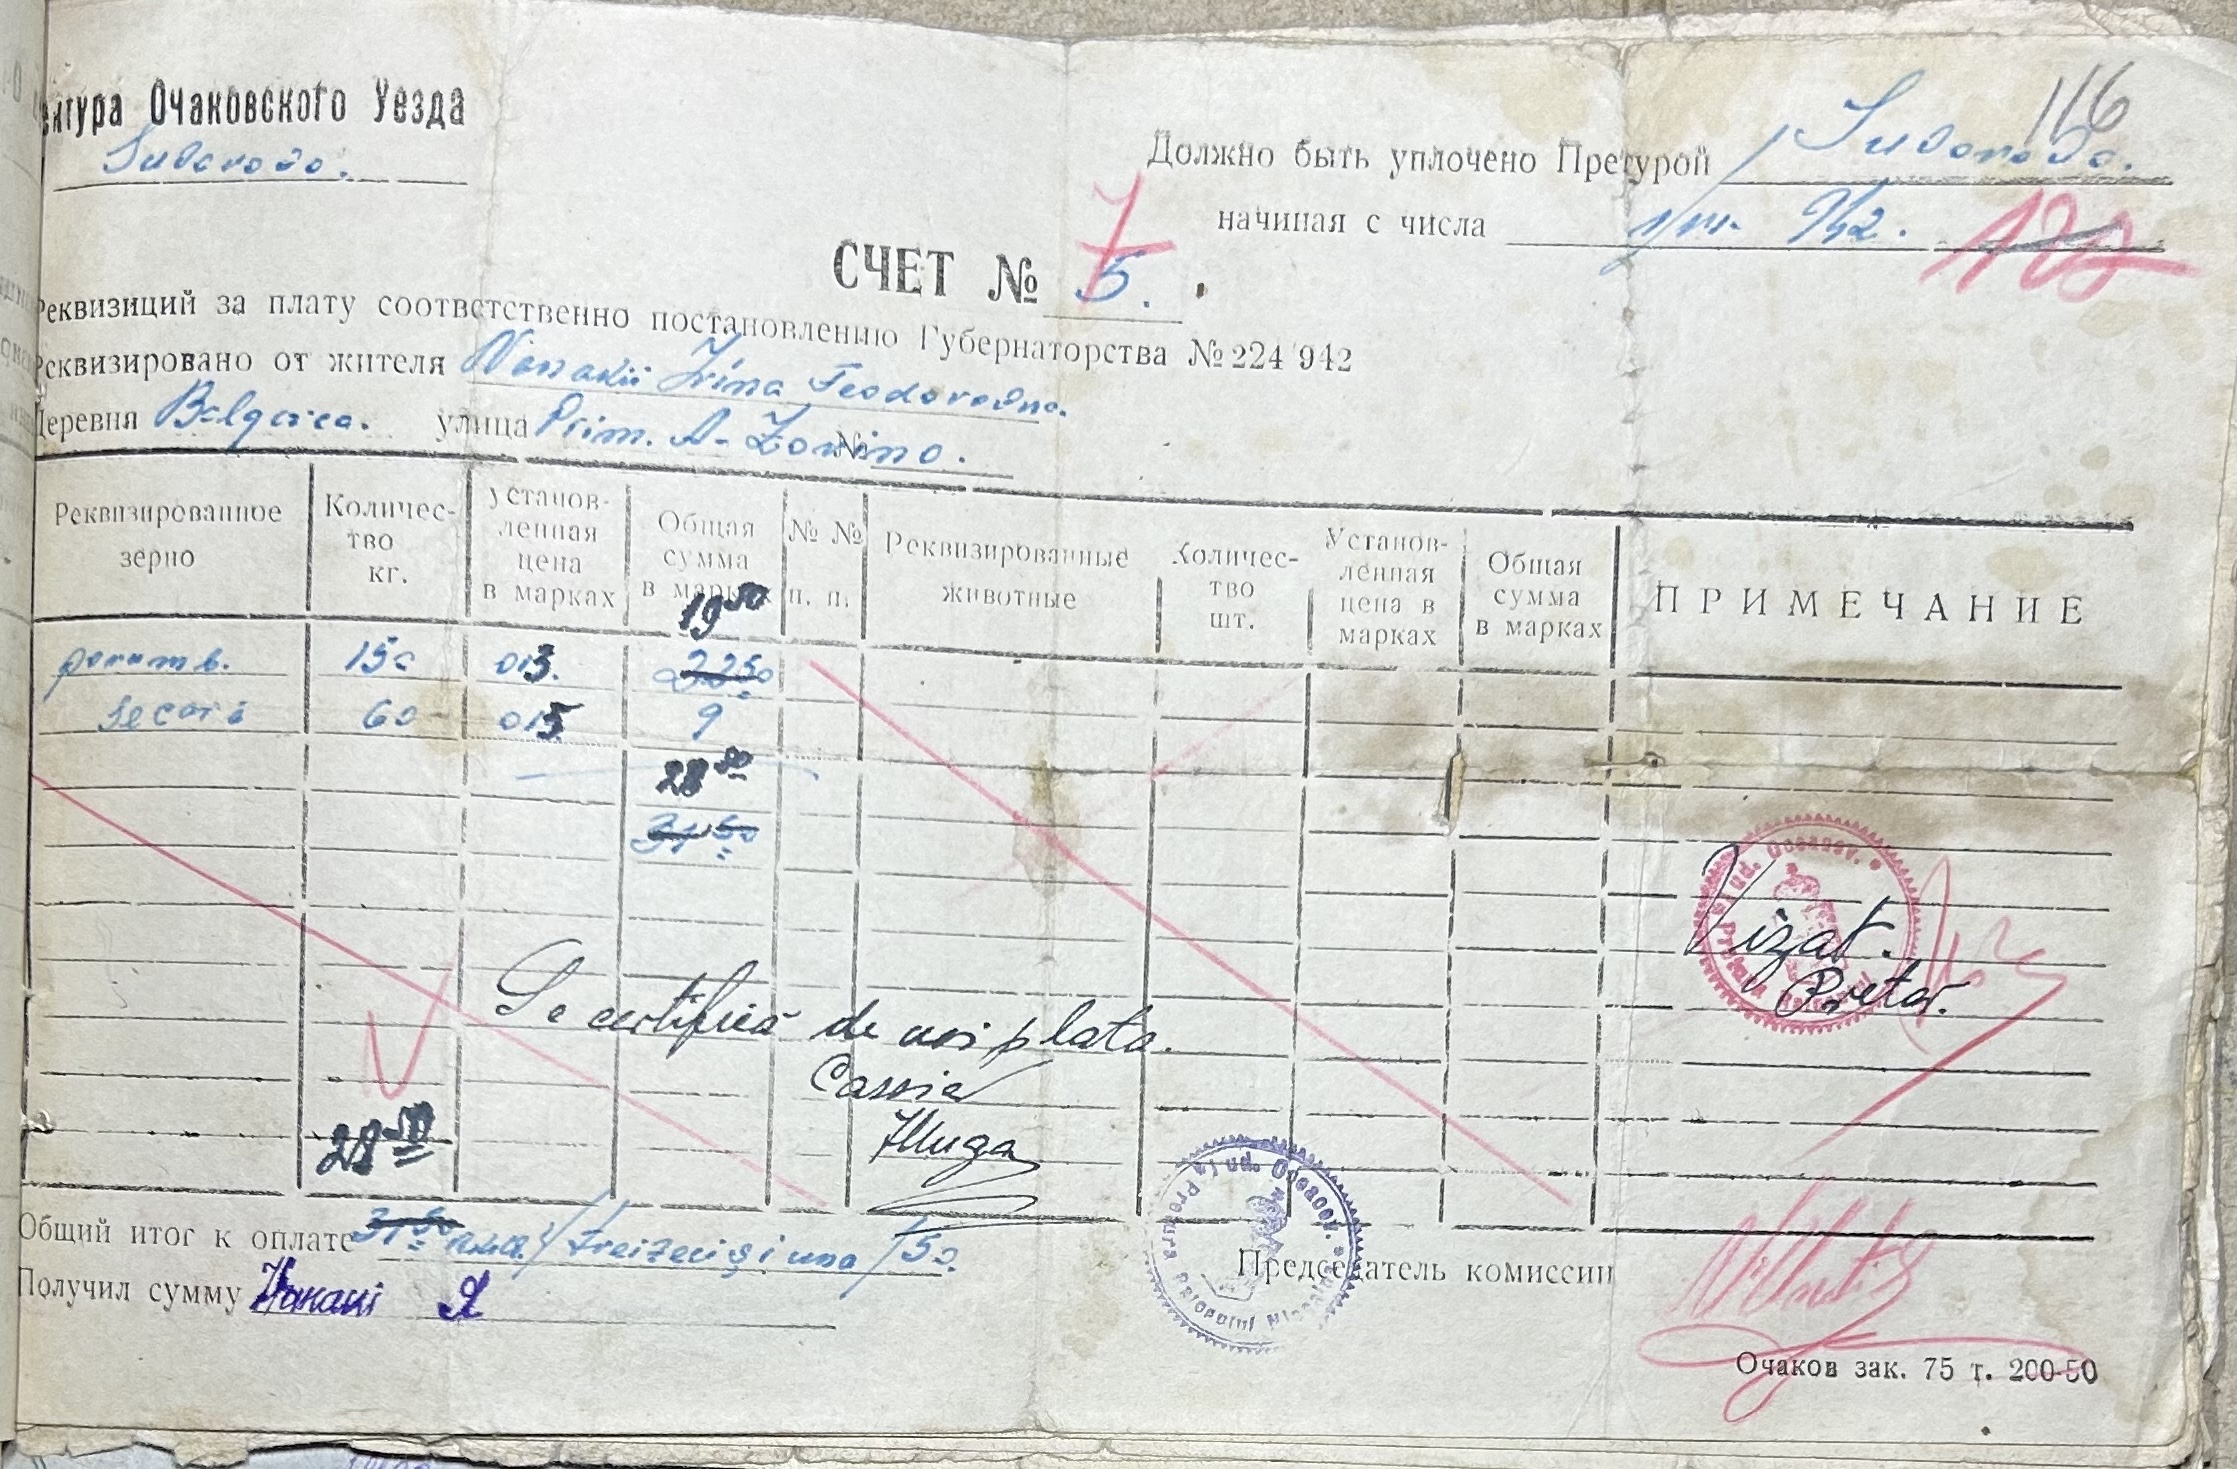 116
Очаковского Уезда
Suvorovo.
Должно быть уплочено Претурой Suvorovo.
начиная с числа
СЧЕТ № 5.
7
Реквизиций за плату соответственно постановлению Губернаторства № 224 942
Реквизировано от жителя Irina Teodorovna.
Деревня улица Prim. A-
№
Реквизированное зерно
Количество кг.
установленная цена в марках
Общая сумма в марках
№ № п. п.
Реквизированные животные
Количество шт.
Установленная цена в марках
Общая сумма в марках
ПРИМЕЧАНИЕ
19 50
porumb. 150 013. 2250
secară 60 015 9
28 50
31 50
Vizat.
Pretor.
Se certifică de noi plata.
Casier
28 50
Общий итог к оплате 31 50 / treizeci și una / 50.
Получил сумму
Председатель комиссии
Jud. Oceacov.
Очаков зак. 75 т. 200-50